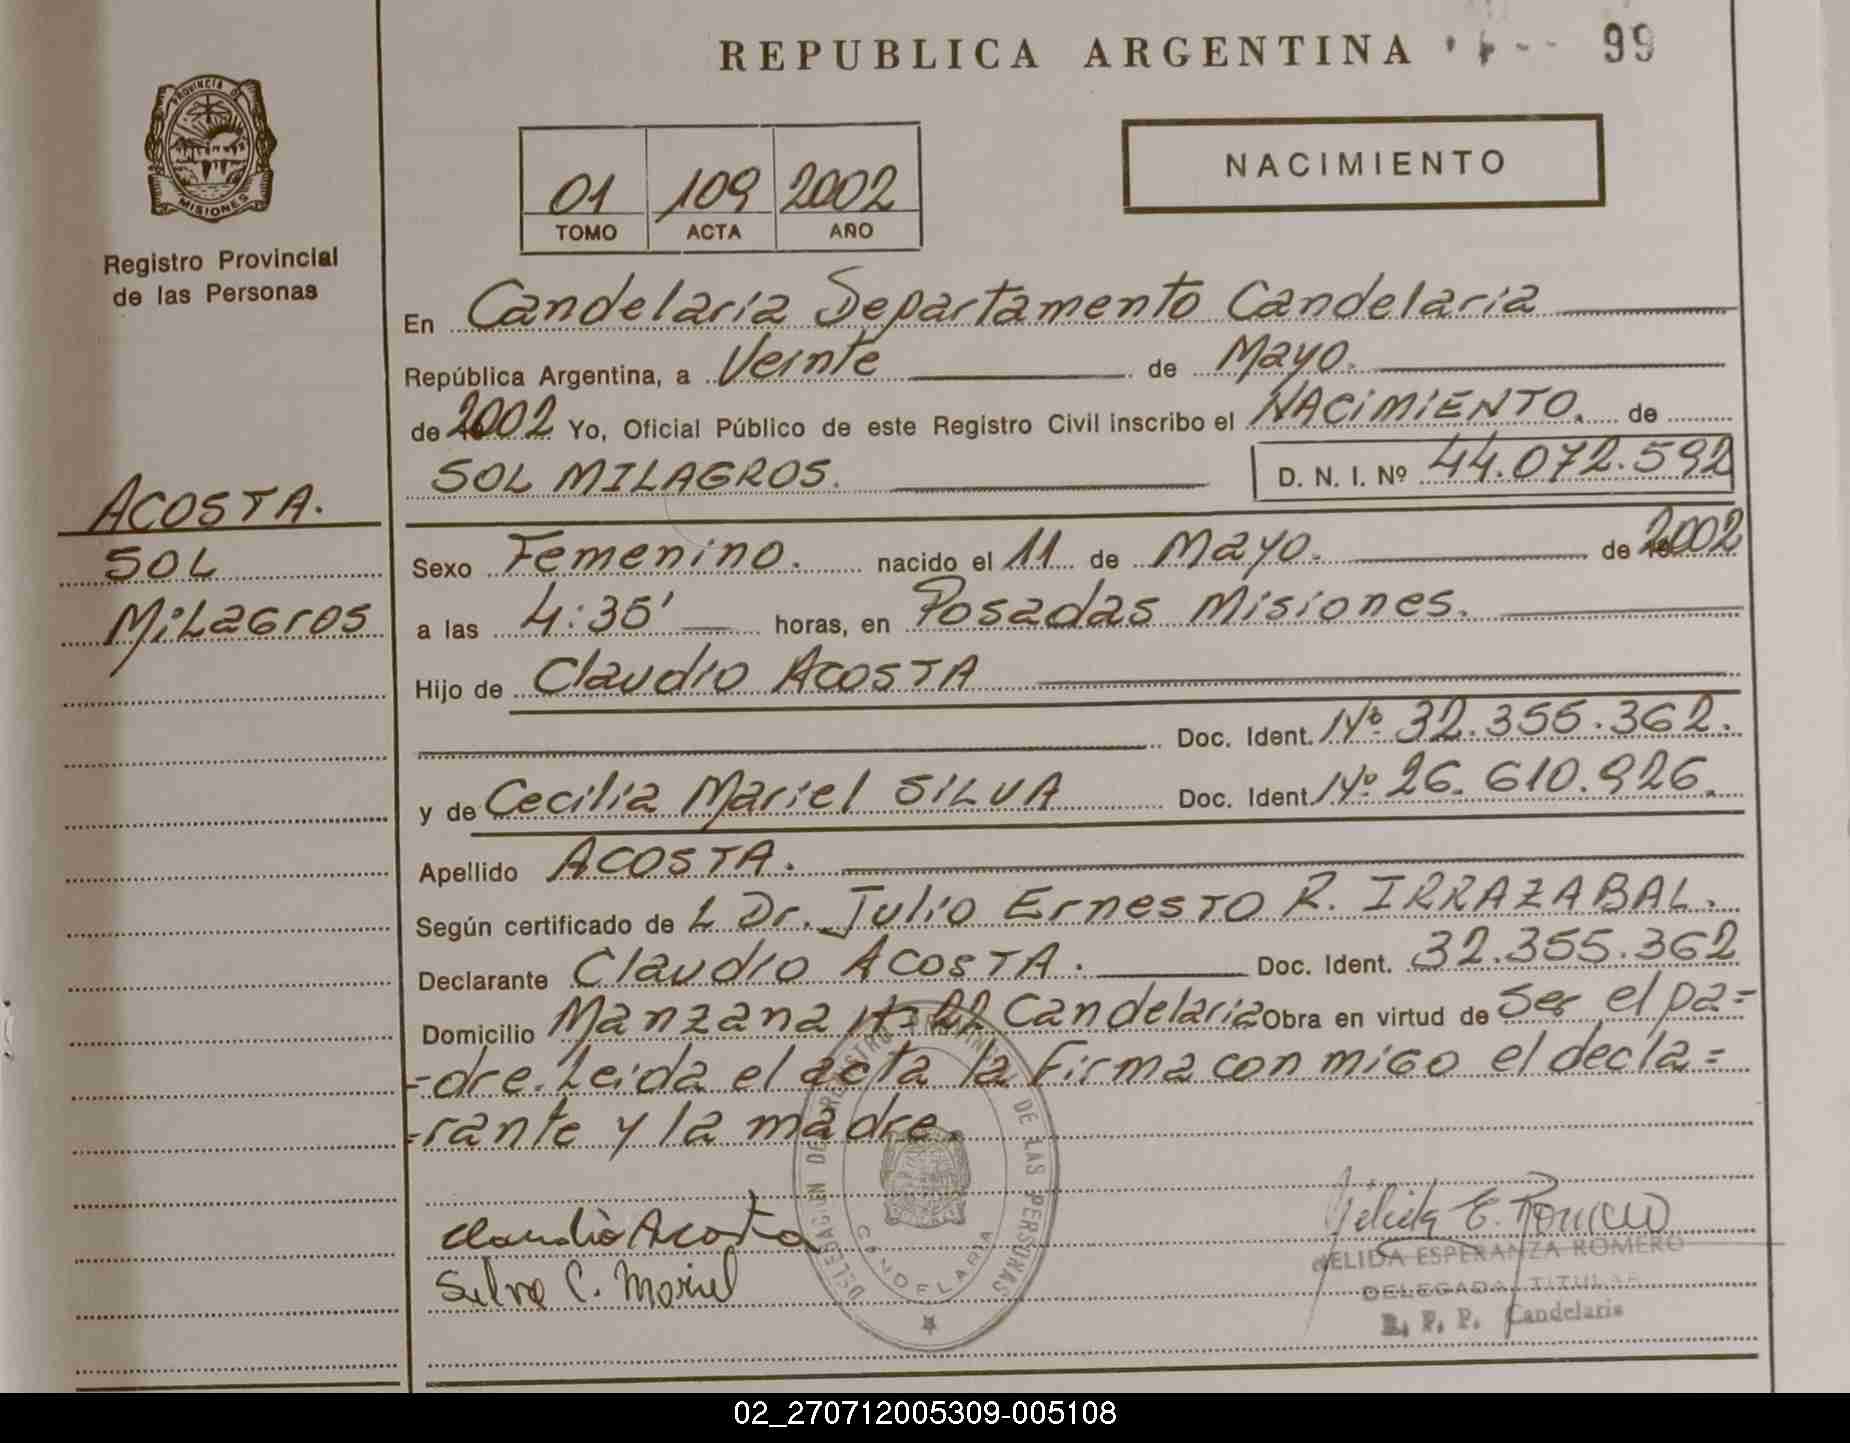 REPUBLICA ARGENTINA 99
PROVINCIA DE MISIONES
Registro Provincial
de las Personas
01 109 2002
TOMO ACTA AÑO
NACIMIENTO
En Candelaria Departamento Candelaria
República Argentina, a Veinte de Mayo.
de 2002 Yo, Oficial Público de este Registro Civil inscribo el NACIMIENTO. de
SOL MILAGROS. D. N. I. Nº 44.072.592
ACOSTA.
SOL
Milagros
Sexo Femenino. nacido el 11 de Mayo. de 2002
a las 4:35' horas, en Posadas Misiones.
Hijo de Claudio ACOSTA
Doc. Ident. Nº 32.355.362.
y de Cecilia Mariel SILVA Doc. Ident. Nº 26.610.926.
Apellido ACOSTA.
Según certificado de L Dr. Julio Ernesto R. IRRAZABAL.
Declarante Claudio ACOSTA. Doc. Ident. 32.355.362
Domicilio Manzana Candelaria Obra en virtud de Ser el pa=
=dre. Leida el acta la Firma con migo el decla=
=rante y la madre.
DELEGACION DEL REGISTRO PROVINCIAL DE LAS PERSONAS
CANDELARIA
Claudio Acosta
Silva C. Mariel
Nélida E. Romero
NELIDA ESPERANZA ROMERO
DELEGADA TITULAR
R. P. P. Candelaria
02_270712005309-005108